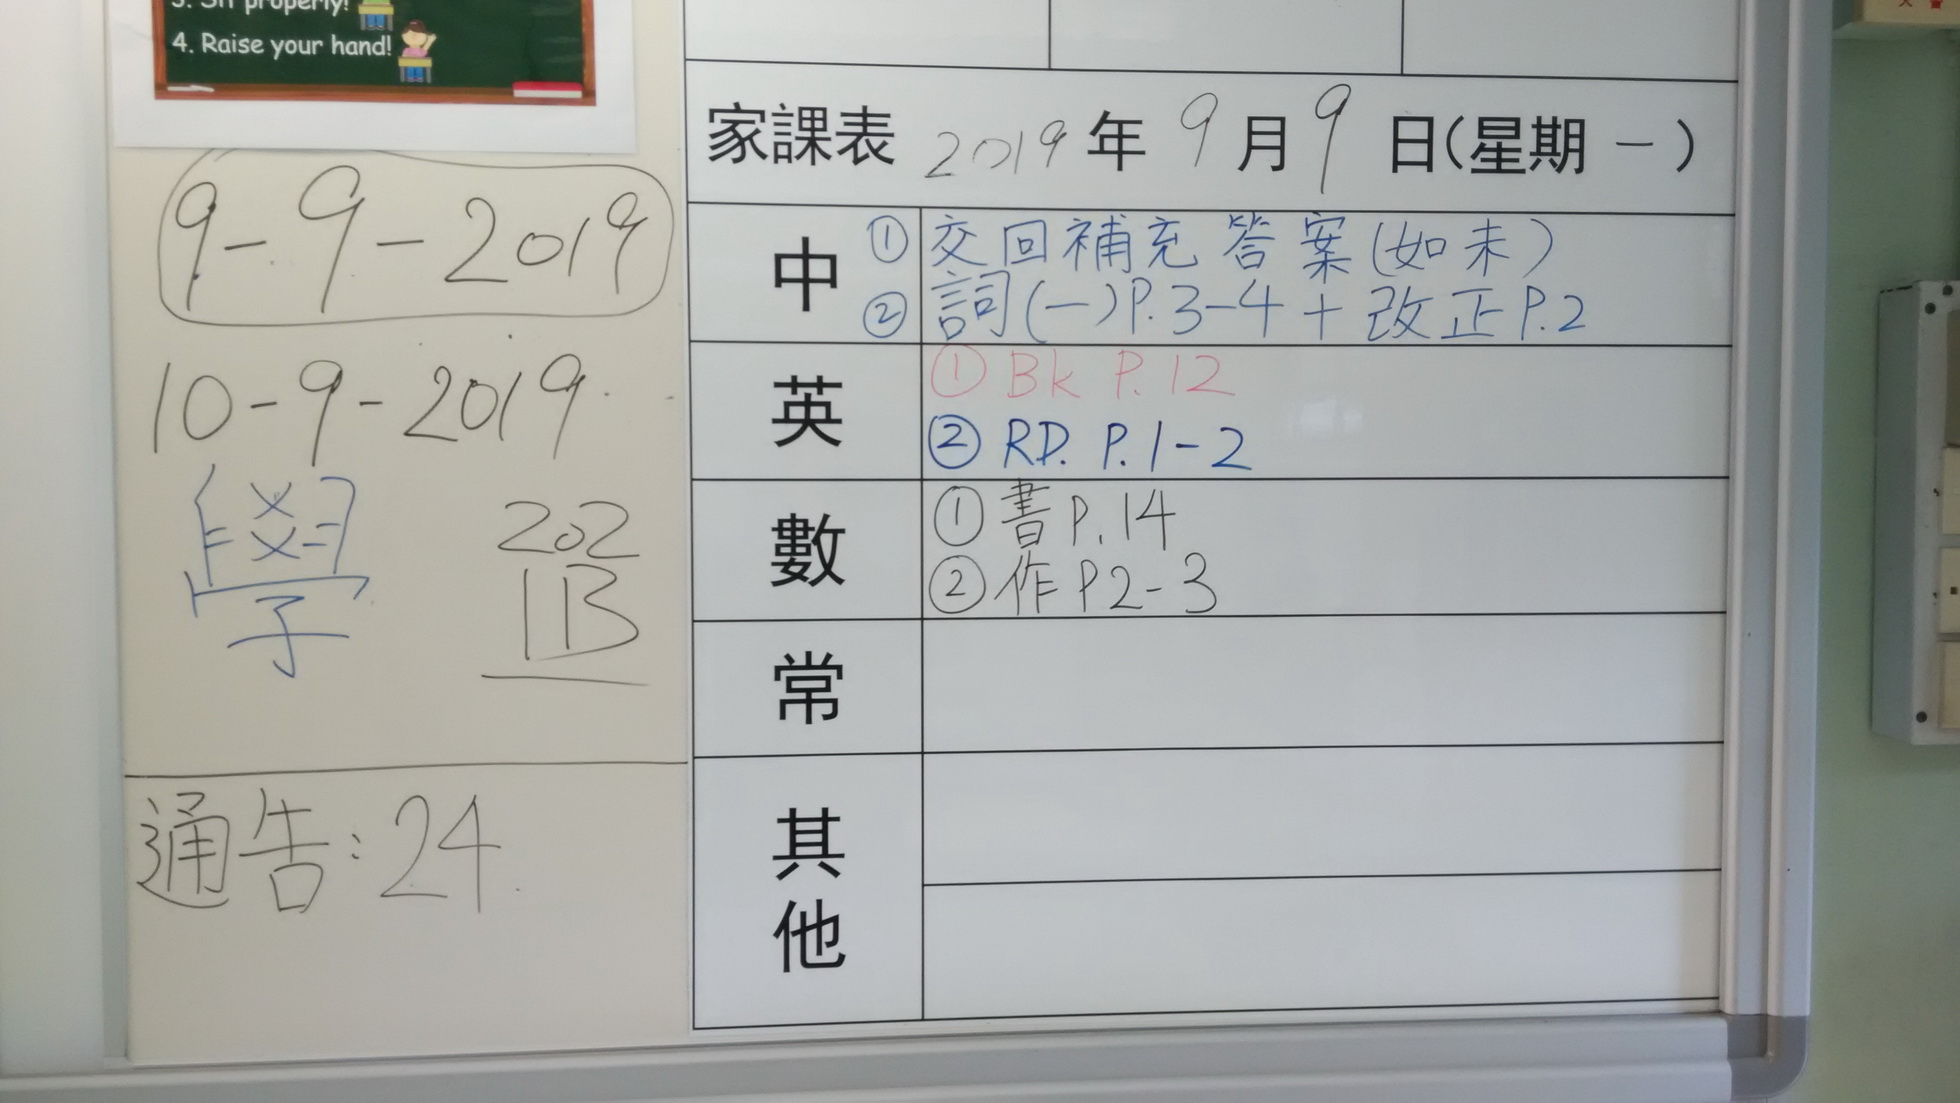 3. Sit properly!
4. Raise your hand!
9-9-2019
10-9-2019
學
202
113
通告：24
家課表 2019年9月9日(星期一)
中
① 交回補充答案(如未)
② 詞(一)P.3-4+改正P.2
英
① Bk P.12
② RD. P.1-2
數
① 書P.14
② 作P2-3
常
其他